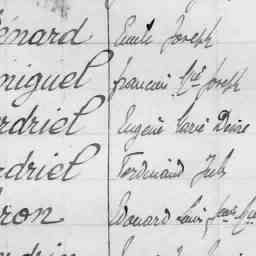 énard Emile Joseph
niguel francois M<sup>ie</sup> Joseph
rdriel Eugène Marie Désiré
rdriel Ferdinand Jules
ron Edouard Louis Jean